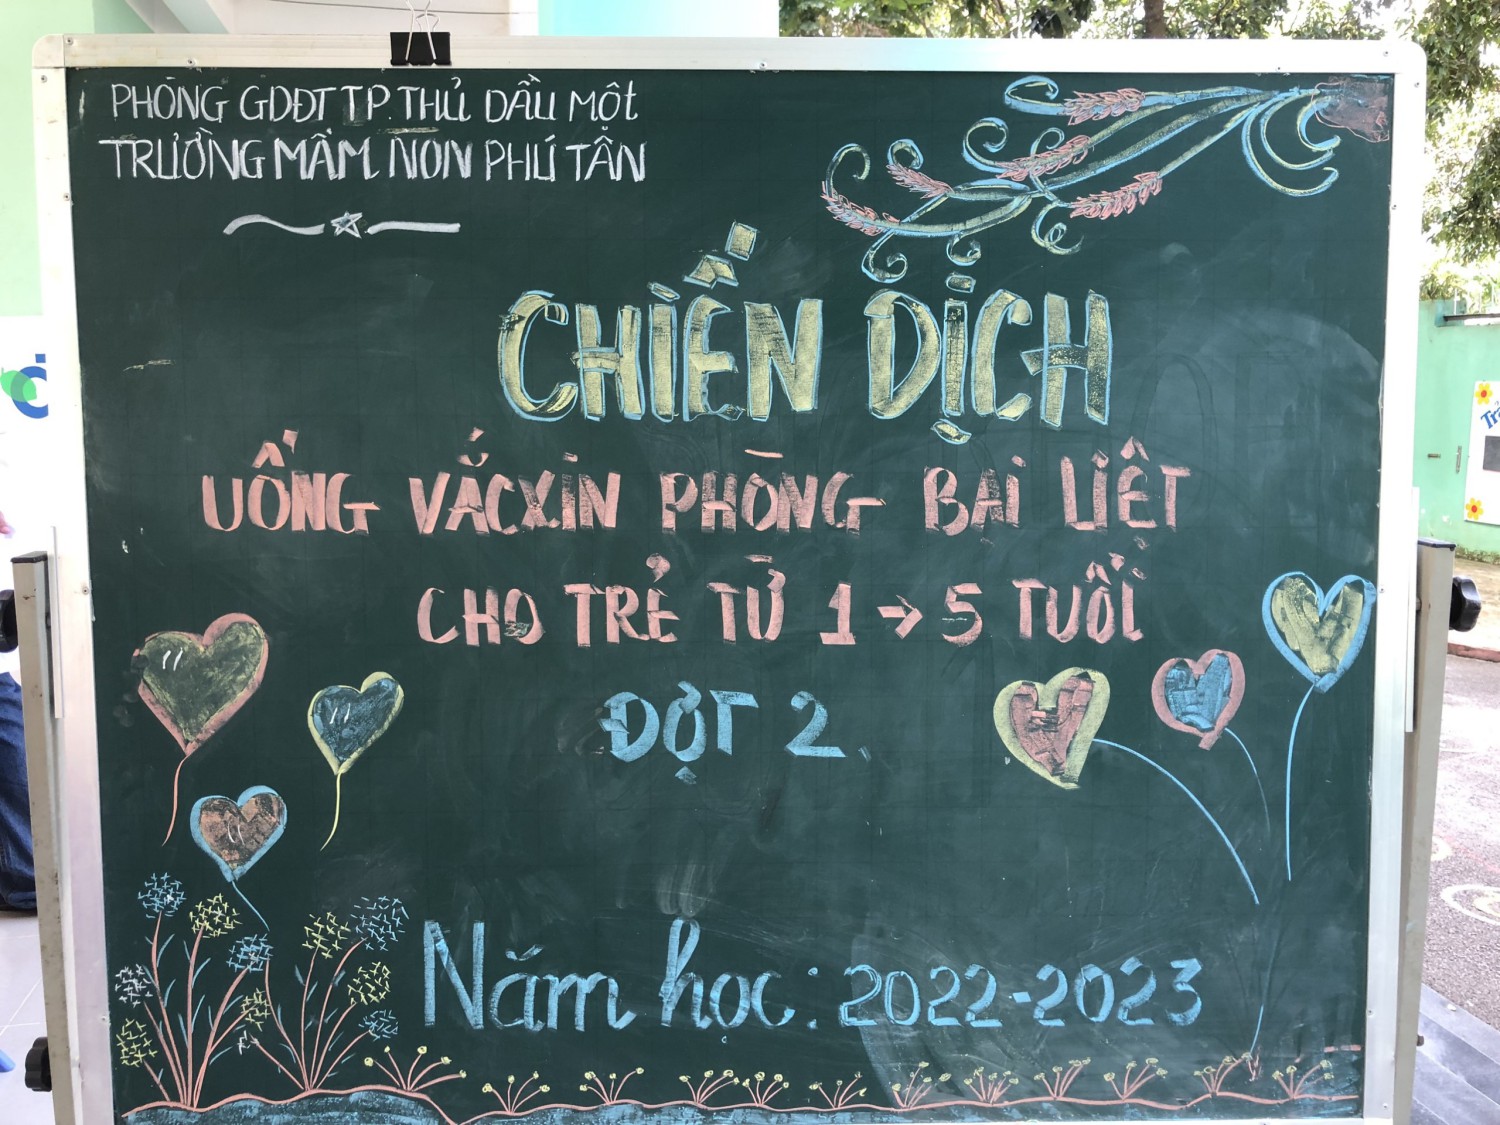 PHÒNG GDĐT TP. THỦ DẦU MỘT
TRƯỜNG MẦM NON PHÚ TÂN
CHIẾN DỊCH
UỐNG VẮCXIN PHÒNG BẠI LIỆT
CHO TRẺ TỪ 1 → 5 TUỔI
ĐỢT 2.
Năm học: 2022-2023